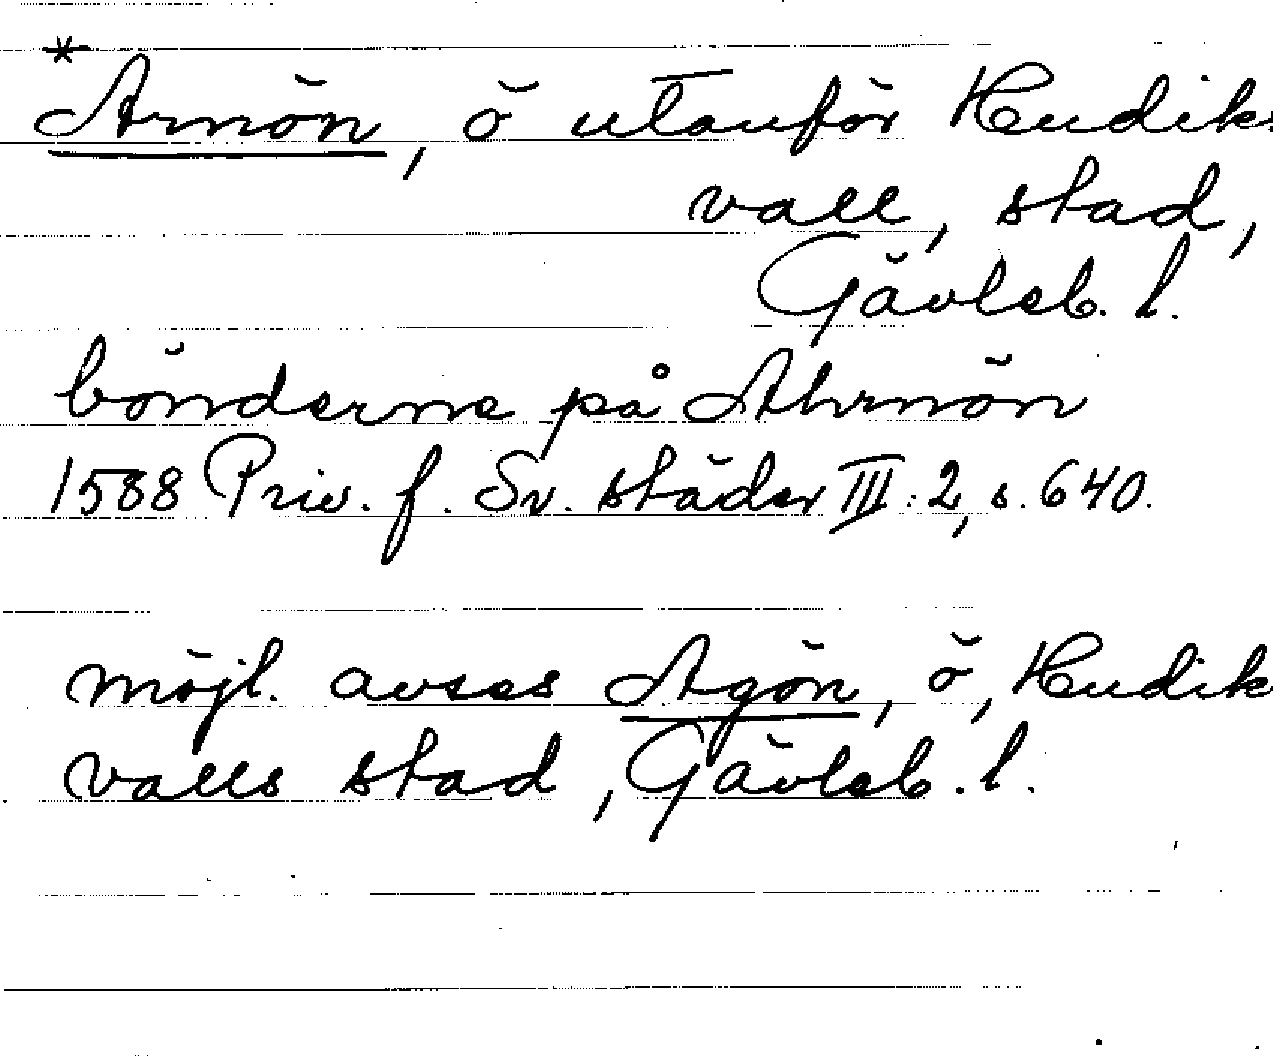 *
Arnön, ö utanför Hudiks
vall, stad,
Gävleb. l.
bönderne på Ahrnön
1588 Priv. f. Sv. städer III:2, s. 640.
möjl. avses Agön, ö, Hudik
valls stad, Gävleb. l.